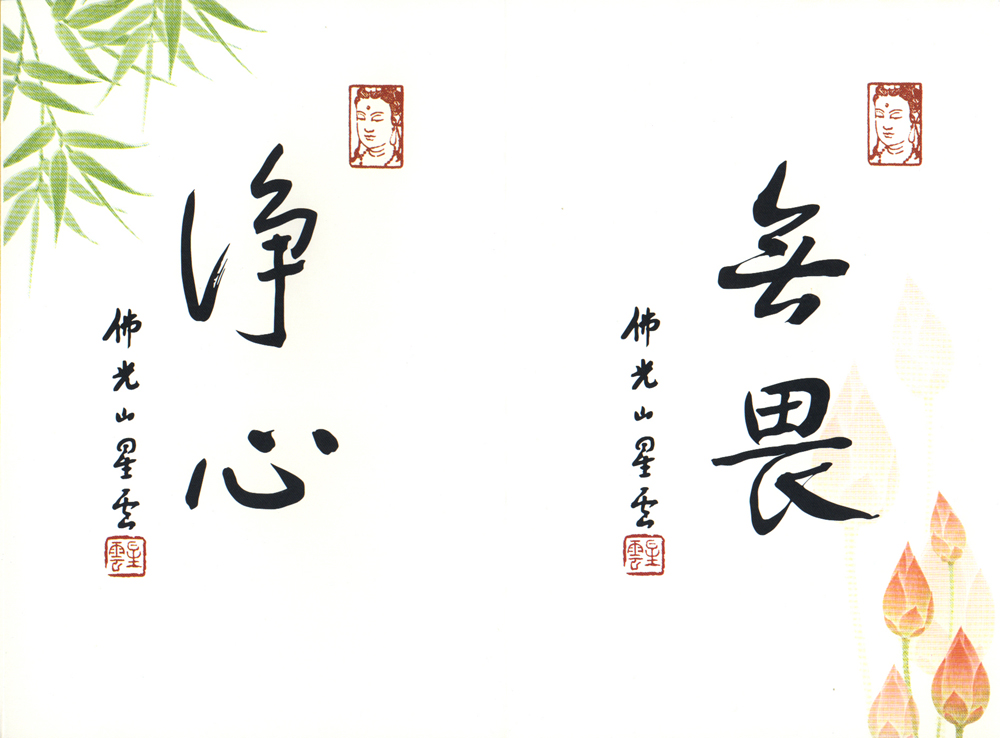 無畏
佛光山星雲
星雲
淨心
佛光山星雲
星雲